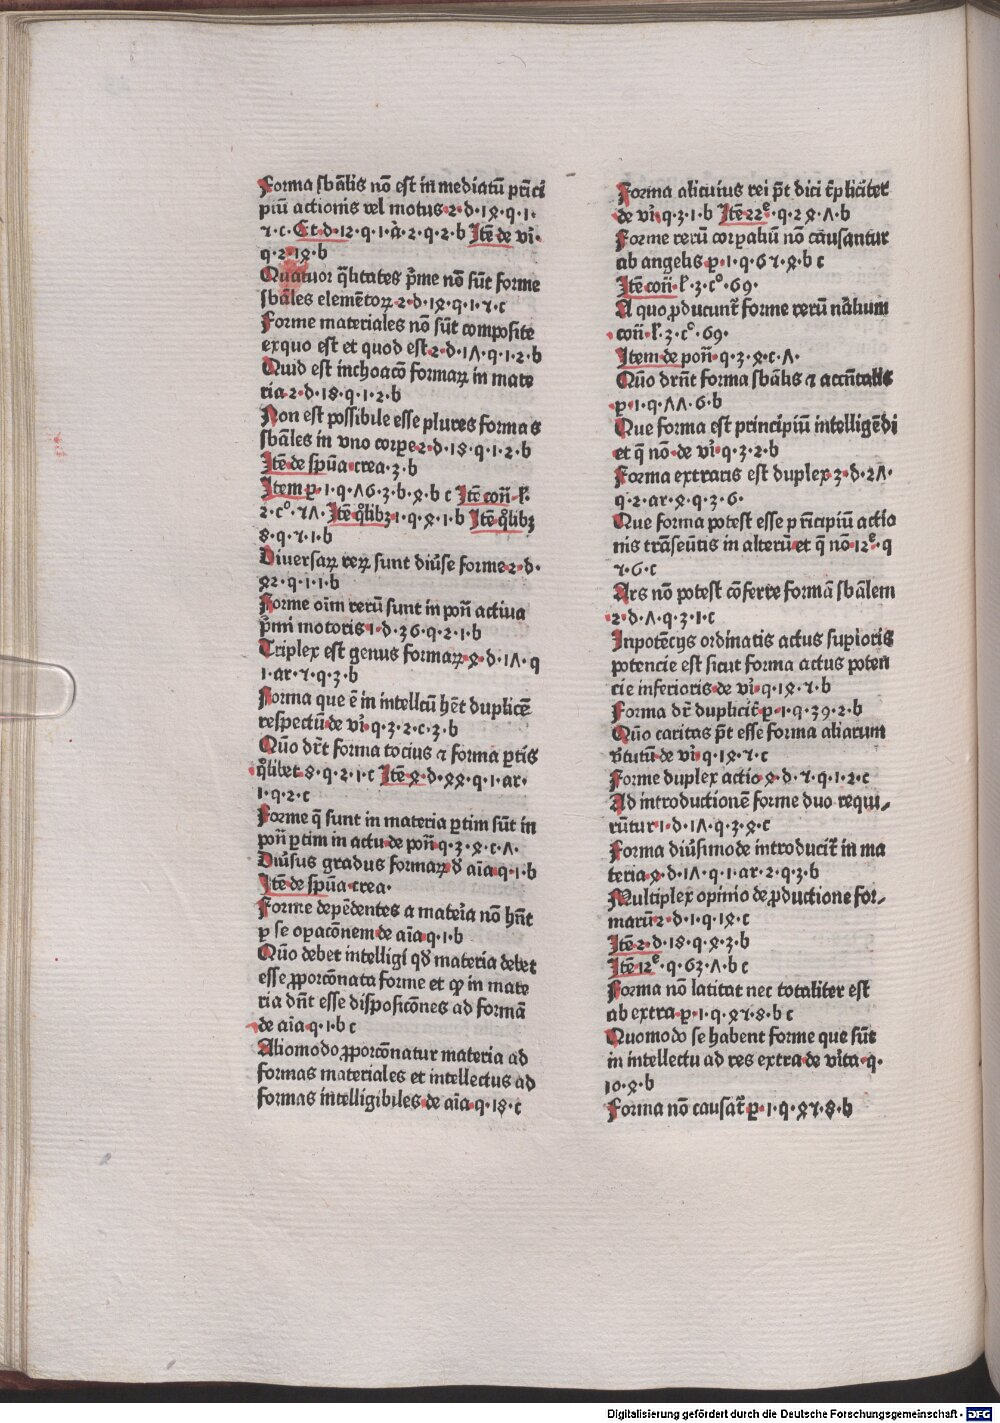 Forma sb̄alis nō est in mediatū prīci
piū actionis vel motus·2·d·18·q·1·
7·c·Et·d·12·q·1·ā·2·q·2·b Itē de vī·
q·2·18·b
Quatuor q̄litates p̄me nō sūt forme
sb̄ales elemētoꝝ·2·d·18·q·1·7·c
Forme materiales nō sūt composite
exquo est et quod est·2·d·1ʌ·q·1·2·b
Quid est inchoacō formaꝝ in mate
ria·2·d·18·q·1·2·b
Non est possibile esse plures formas
sb̄ales in vno corpe·2·d·18·q·1·2·b
Itē de spūa·crea·3·b
Item p·1·q·ʌ6·3·b·8·b c Itē con̄·l·
2·c°·7ʌ·Itē q̄libꝫ·1·q·8·1·b Itē q̄libꝫ
8·q·7·1·b
Diuersaꝝ reꝝ sunt diūse forme·2·d·
82·q·1·1·b
Forme oīm rerū sunt in pon̄ actiua
p̄mi motoris·1·d·36·q·2·1·b
Triplex est genus formaꝝ·8·d·1ʌ·q
1·ar·7·q·3·b
Forma que ē in intellcū hēt duplicē
respectū·de vī·q·3·2·c·3·b
Quō dr̄t forma tocius ⁊ forma ꝑtis
q̄libet·8·q·2·1·c Itē·8·d·88·q·1·ar·
1·q·2·c
Forme q̄ sunt in materia ꝑtim sūt in
pon̄ ꝑtim in actu·de pon̄·q·3·8·c·ʌ·
Diūsus gradus formaꝝ ꝺ aīa·q·1·b
Itē·de spūa·crea·
Forme depēdentes a mateīa nō hn̄t
ꝑ se opacōnem·de aīa·q·1·b
Quō debet intelligi qd̄ materia debet
esse ꝓporcōnata forme et ꝙ in mate
ria dn̄t esse disposicōnes ad formā
·de aīa·q·1·b c
Aliomodo ꝓporcōnatur materia ad
formas materiales et intellectus ad
formas intelligibiles·de aīa·q·18·c
Forma alicuius rei p̄t dici t̄pliciter
de vī·q·3·1·b Itē·22ͤ·q·28·ʌ·b
Forme rerū corpaliū nō causantur
ab angelis·p·1·q·67·8·b c
Itē con̄·l·3·c°·69·
A quo ꝓducunt̄ forme rerū nālium
·con̄·l·3·c°·69·
Item·de pon̄·q·3·8·c·ʌ·
Quō drn̄t forma sb̄alis ⁊ accn̄talis
p·1·q·ʌʌ·6·b
Que forma est principiū intelligēdi
et q̄ nō·de vī·q·3·2·b
Forma extraris est duplex·3·d·2ʌ·
q·2·ar·8·q·3·6·
Que forma potest esse p rīcipiū actio
nis trāseūtis in alterū et q̄ nō·12ͤ·q
7·6·c
Ars nō potest cōferre formā sb̄alem
·2·d·ʌ·q·3·1·c
Inpotēcijs ordinatis actus supioris
potencie est sicut forma actus poten
cie inferioris·de vī·q·18·7·b
Forma dr̄ duplicit̄·p·1·q·39·2·b
Quō caritas p̄t esse forma aliarum
v̄tutū·de vī·q·18·7·c
Forme duplex actio·8·d·7·q·1·2·c
Ad introductionē forme duo requi⸗
rūtur·1·d·1ʌ·q·3·8·c
Forma diūsimode introducit̄ in ma
teria·8·d·1ʌ·q·1·ar·2·q·3·b
Multiplex opinio de ꝓductione for⸗
marū·2·d·1·q·18·c
Itē·2·d·18·q·8·3·b
Itē·12ͤ·q·63·ʌ·b c
Forma nō latitat nec totaliter est
ab extra·p·1·q·87·8·b c
Quomodo se habent forme que sūt
in intellectu ad res extra·de vīta·q·
10·8·b
Forma nō causat̄·p·1·q·87·8·b
Digitalisierung gefördert durch die Deutsche Forschungsgemeinschaft - DFG